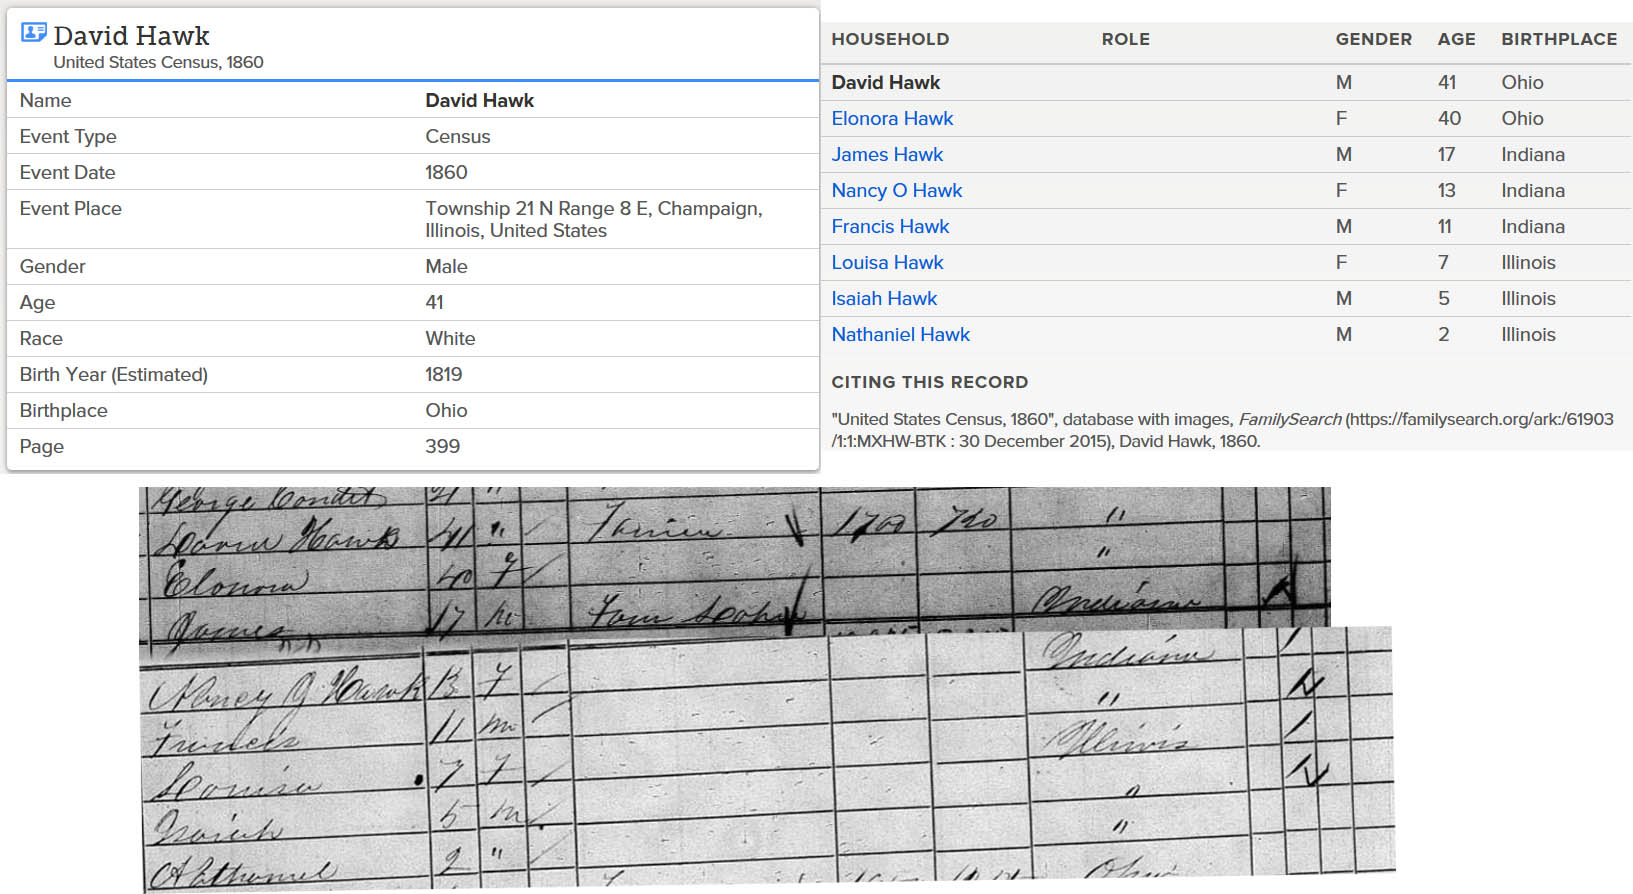 David Hawk
United States Census, 1860
Name David Hawk
Event Type Census
Event Date 1860
Event Place Township 21 N Range 8 E, Champaign,
Illinois, United States
Gender Male
Age 41
Race White
Birth Year (Estimated) 1819
Birthplace Ohio
Page 399
HOUSEHOLD ROLE GENDER AGE BIRTHPLACE
David Hawk M 41 Ohio
Elonora Hawk F 40 Ohio
James Hawk M 17 Indiana
Nancy O Hawk F 13 Indiana
Francis Hawk M 11 Indiana
Louisa Hawk F 7 Illinois
Isaiah Hawk M 5 Illinois
Nathaniel Hawk M 2 Illinois
CITING THIS RECORD
"United States Census, 1860", database with images, FamilySearch (https://familysearch.org/ark:/61903
/1:1:MXHW-BTK : 30 December 2015), David Hawk, 1860.
George Condit 21 "
David Hawk 41 " / Farmer 1700 720 "
Elonora 40 F / "
James 17 m Indiana
Indiana
Nancy J Hawk 13 F / "
Francis 11 m / Illinois
Louisa 7 F / "
Isaiah 5 m / "
Nathaniel 2 " / Ohio